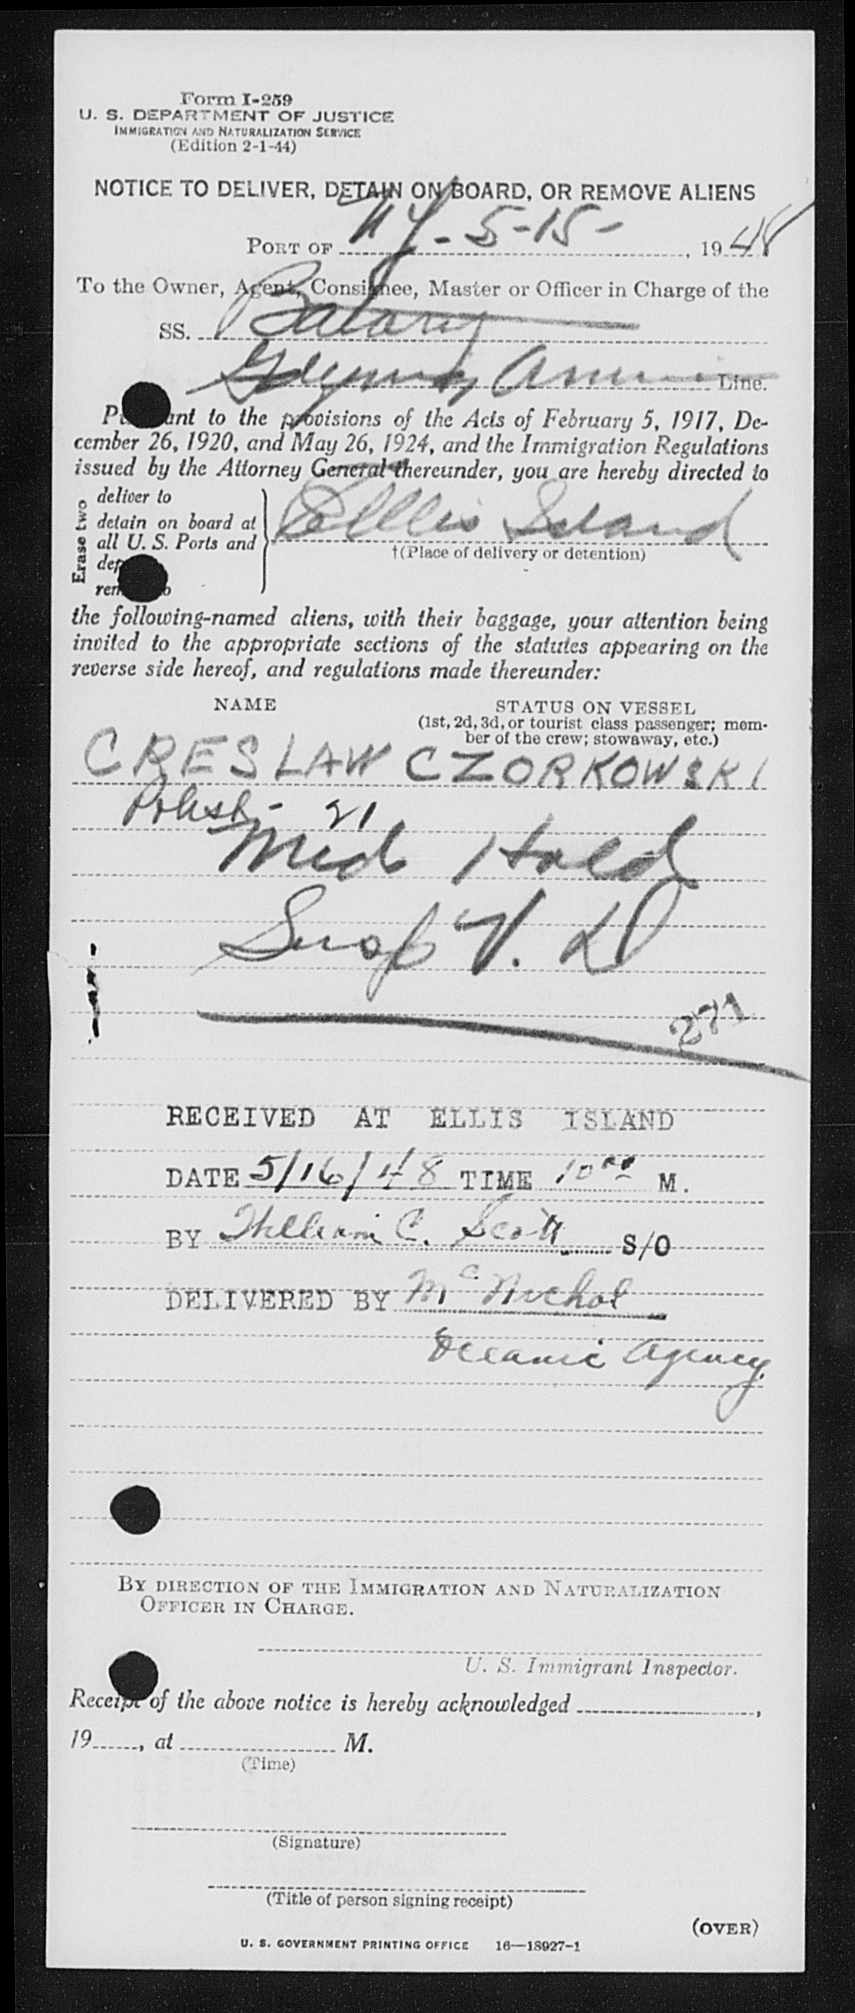 Form I-259
U. S. DEPARTMENT OF JUSTICE
IMMIGRATION AND NATURALIZATION SERVICE
(Edition 2-1-44)
NOTICE TO DELIVER, DETAIN ON BOARD, OR REMOVE ALIENS
PORT OF NY - 5-15-, 1948
To the Owner, Agent, Consignee, Master or Officer in Charge of the
SS. Batory
Gdynia America Line.
Pursuant to the provisions of the Acts of February 5, 1917, De-
cember 26, 1920, and May 26, 1924, and the Immigration Regulations
issued by the Attorney General thereunder, you are hereby directed to
Erase two
deliver to
detain on board at
all U. S. Ports and
Ellis Island
†(Place of delivery or detention)
the following-named aliens, with their baggage, your attention being
invited to the appropriate sections of the statutes appearing on the
reverse side hereof, and regulations made thereunder:
NAME STATUS ON VESSEL
(1st, 2d, 3d, or tourist class passenger; mem-
ber of the crew; stowaway, etc.)
CRESLAW CZORKOWSKI
Polish - 21
Med Hold
Susp V. D
271
RECEIVED AT ELLIS ISLAND
DATE 5/16/48 TIME 10 M.
BY William C. Scott S/O
DELIVERED BY McNichol
Oceanic Agency
BY DIRECTION OF THE IMMIGRATION AND NATURALIZATION
OFFICER IN CHARGE.
U. S. Immigrant Inspector.
Receipt of the above notice is hereby acknowledged ,
19 , at M.
(Time)
(Signature)
(Title of person signing receipt)
(OVER)
U. S. GOVERNMENT PRINTING OFFICE 16—18927-1